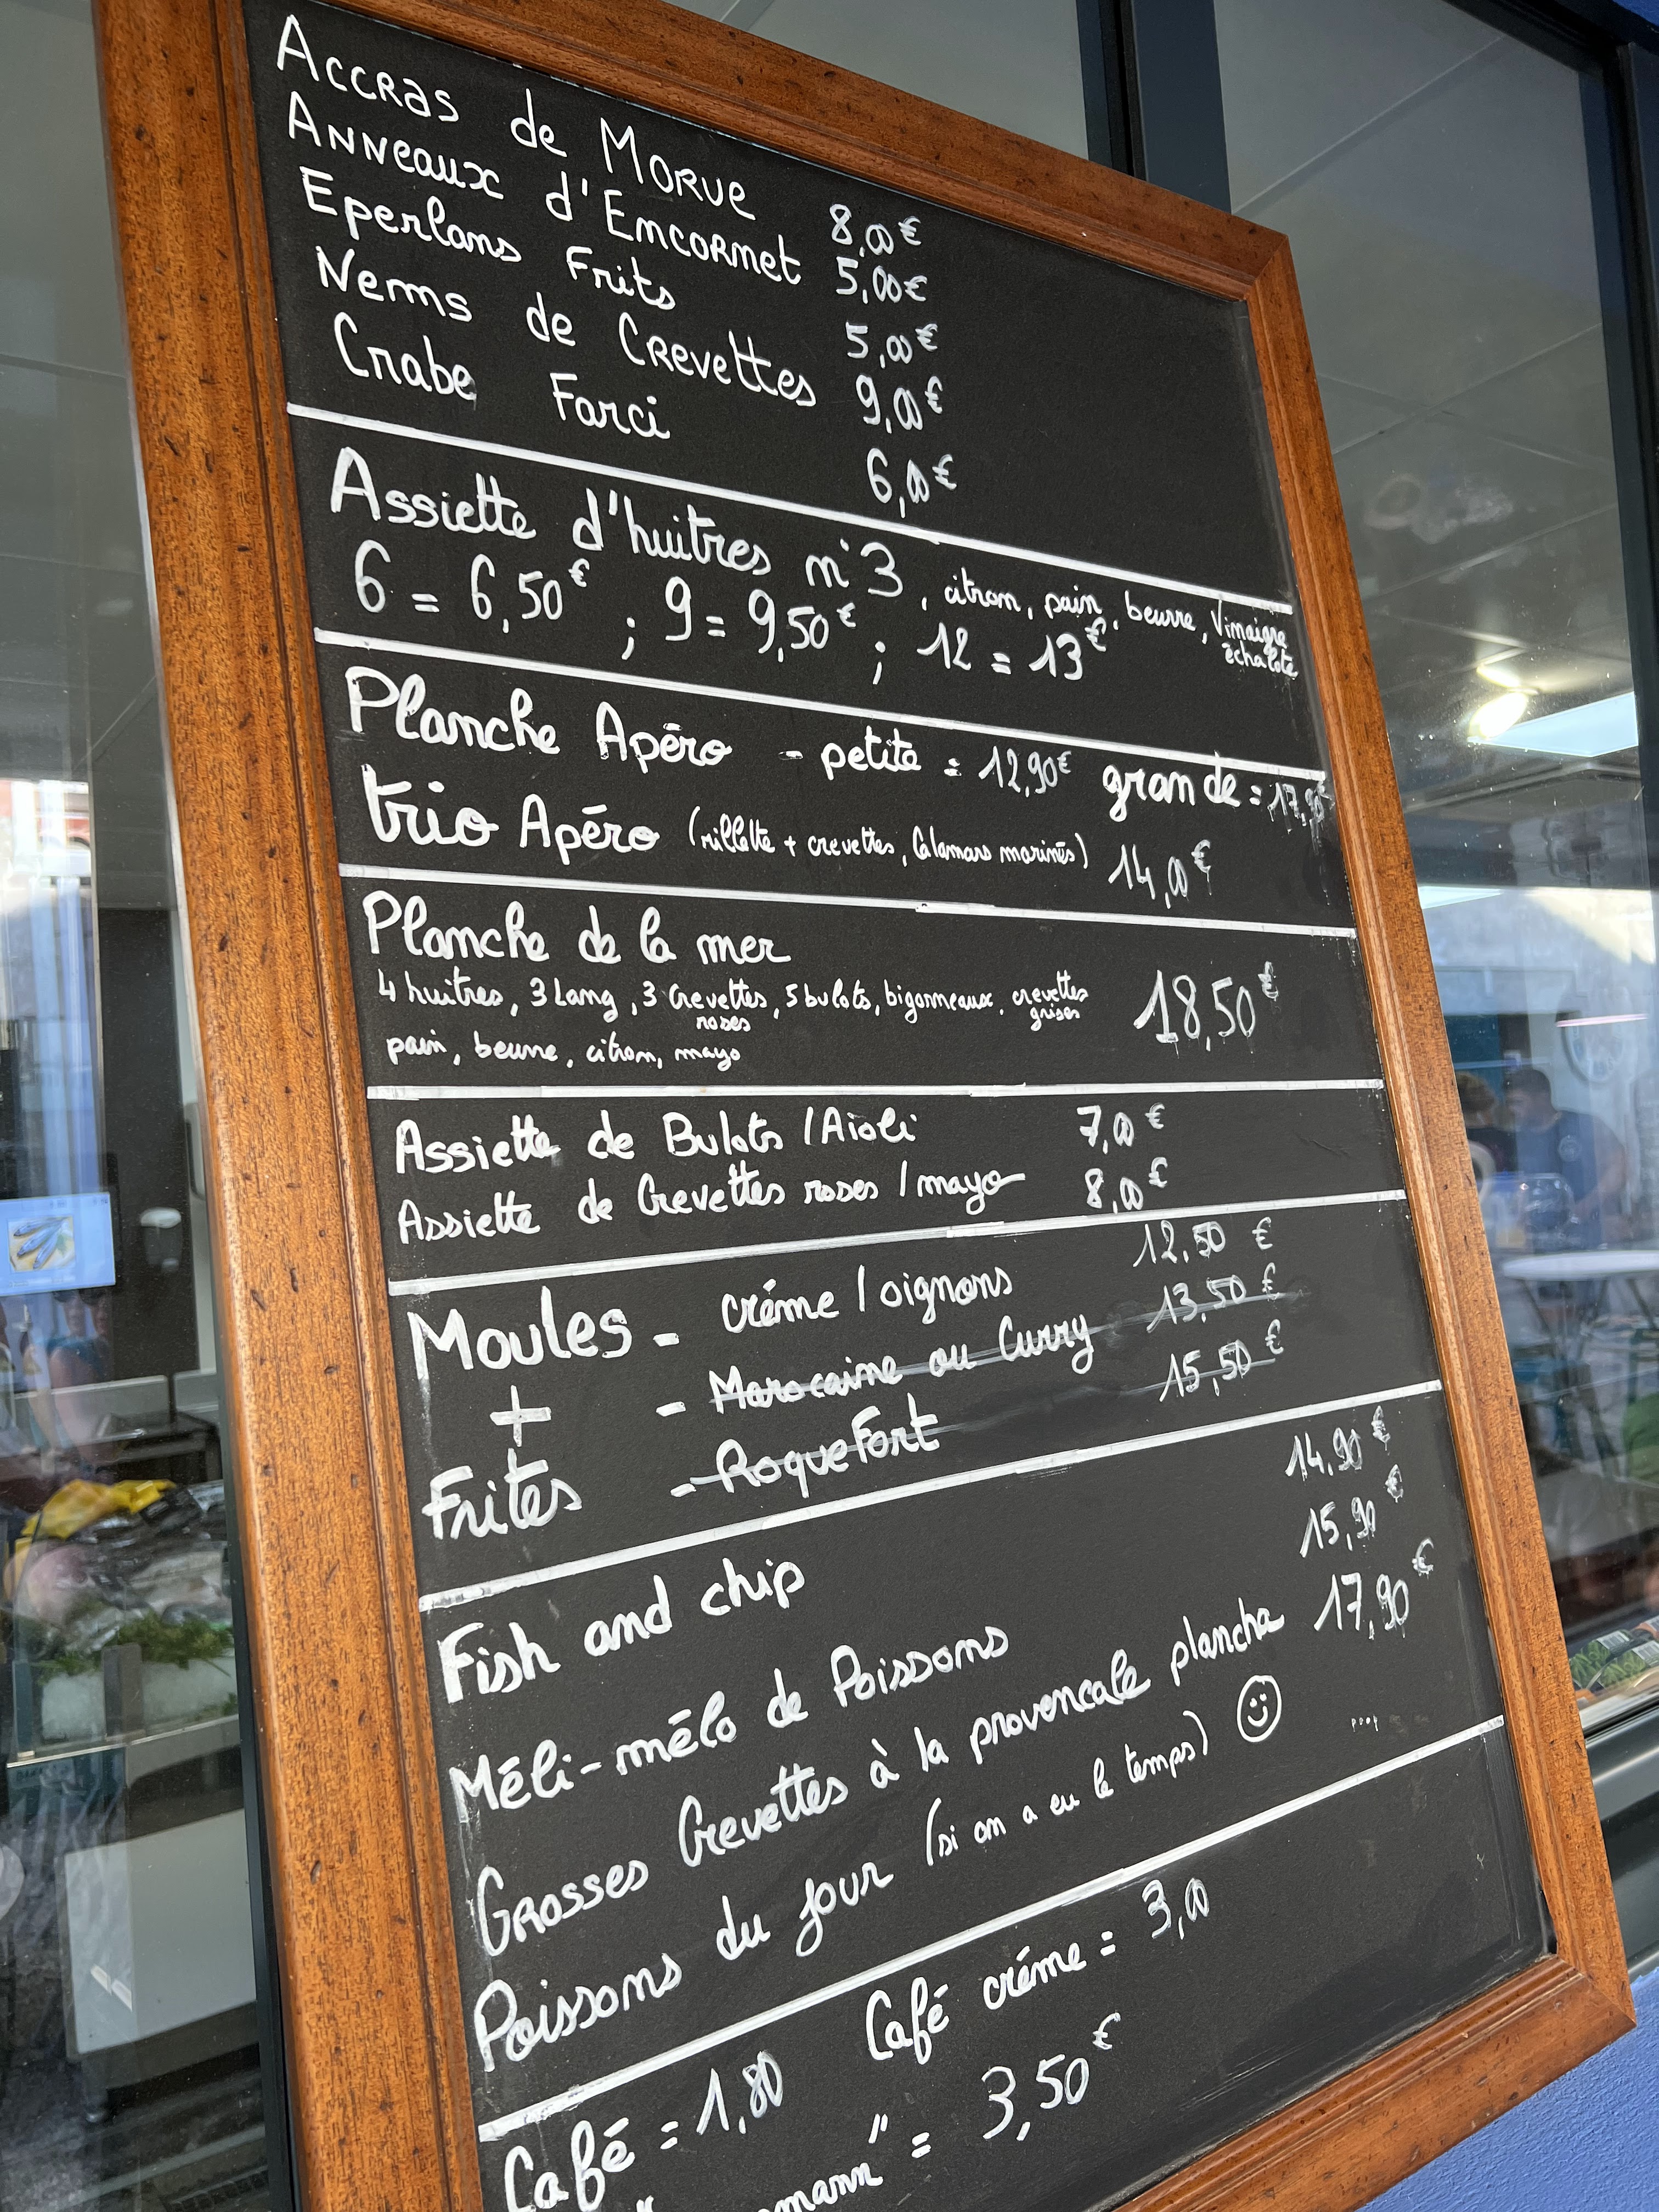 Accras de Morue 8,00€
Anneaux d'Emcornet 5,00€
Eperlans Frits 5,00€
Nems de Crevettes 9,00€
Crabe Farci 6,00€
Assiette d'huitres n°3, citron, pain, beurre, Vinaigre échalote
6 = 6,50€ ; 9 = 9,50€ ; 12 = 13€
Planche Apéro - petite = 12,90€ grande = 17,90€
trio Apéro (rillette + crevettes, Calamars marinés) 14,00€
Planche de la mer 18,50€
4 huitres, 3 Lang, 3 Crevettes roses, 5 bulots, bigorneaux, crevettes grises
pain, beurre, citron, mayo
Assiette de Bulots / Aïoli 7,00€
Assiette de Crevettes roses / mayo 8,00€
Moules - créme / oignons 12.50 €
+ - Marocaine ou Curry 13,50 €
Frites - Roquefort 15,50 €
Fish and chip 14,90€
Méli-mélo de Poissons 15,90€
Grosses Crevettes à la provencale plancha 17,90€
Poissons du jour (si on a eu le temps) ☺
Café = 1,80 Café créme = 3,00
" = 3,50€